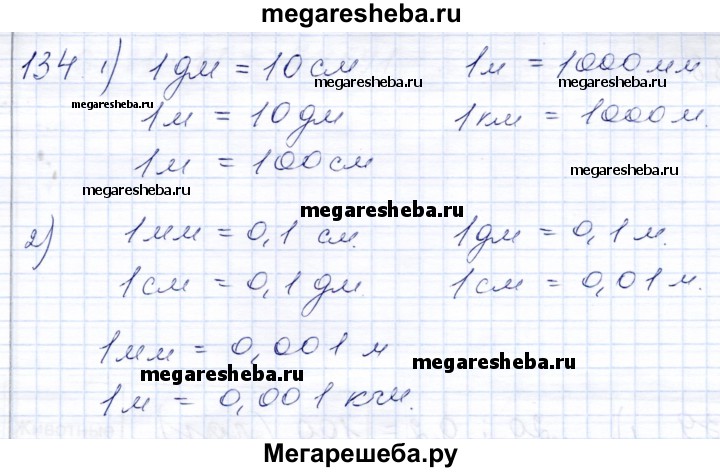 megaresheba.ru
134. 1) 1 дм = 10 см 1 м = 1000 мм
megaresheba.ru megaresheba.ru megaresheba.ru
1 м = 10 дм 1 км = 1000 м.
1 м = 100 см
megaresheba.ru megaresheba.ru
megaresheba.ru
2) 1 мм = 0,1 см. 1 дм = 0,1 м.
1 см = 0,1 дм. 1 см = 0,01 м.
1 мм = 0,001 м
megaresheba.ru megaresheba.ru
1 м = 0,001 км.
Мегарешеба.ру